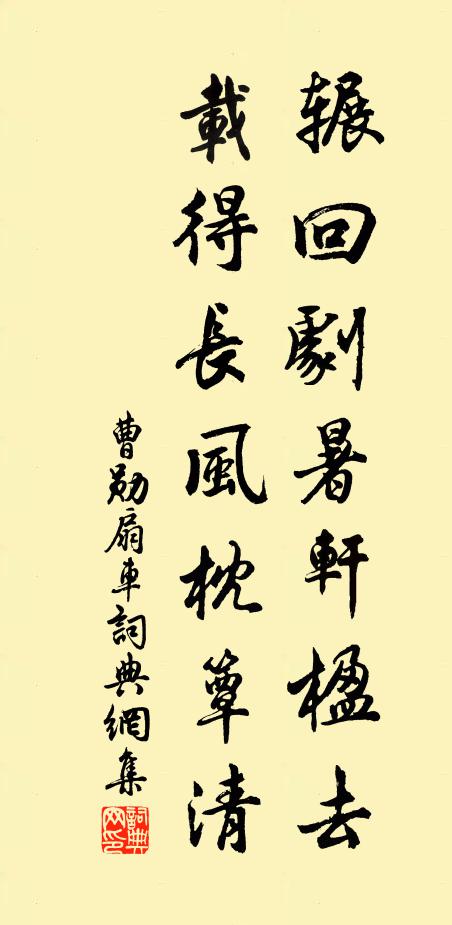 辗回劇暑軒楹去
載得長風枕簟清
曹勛扇車詞典網集
詞典網印